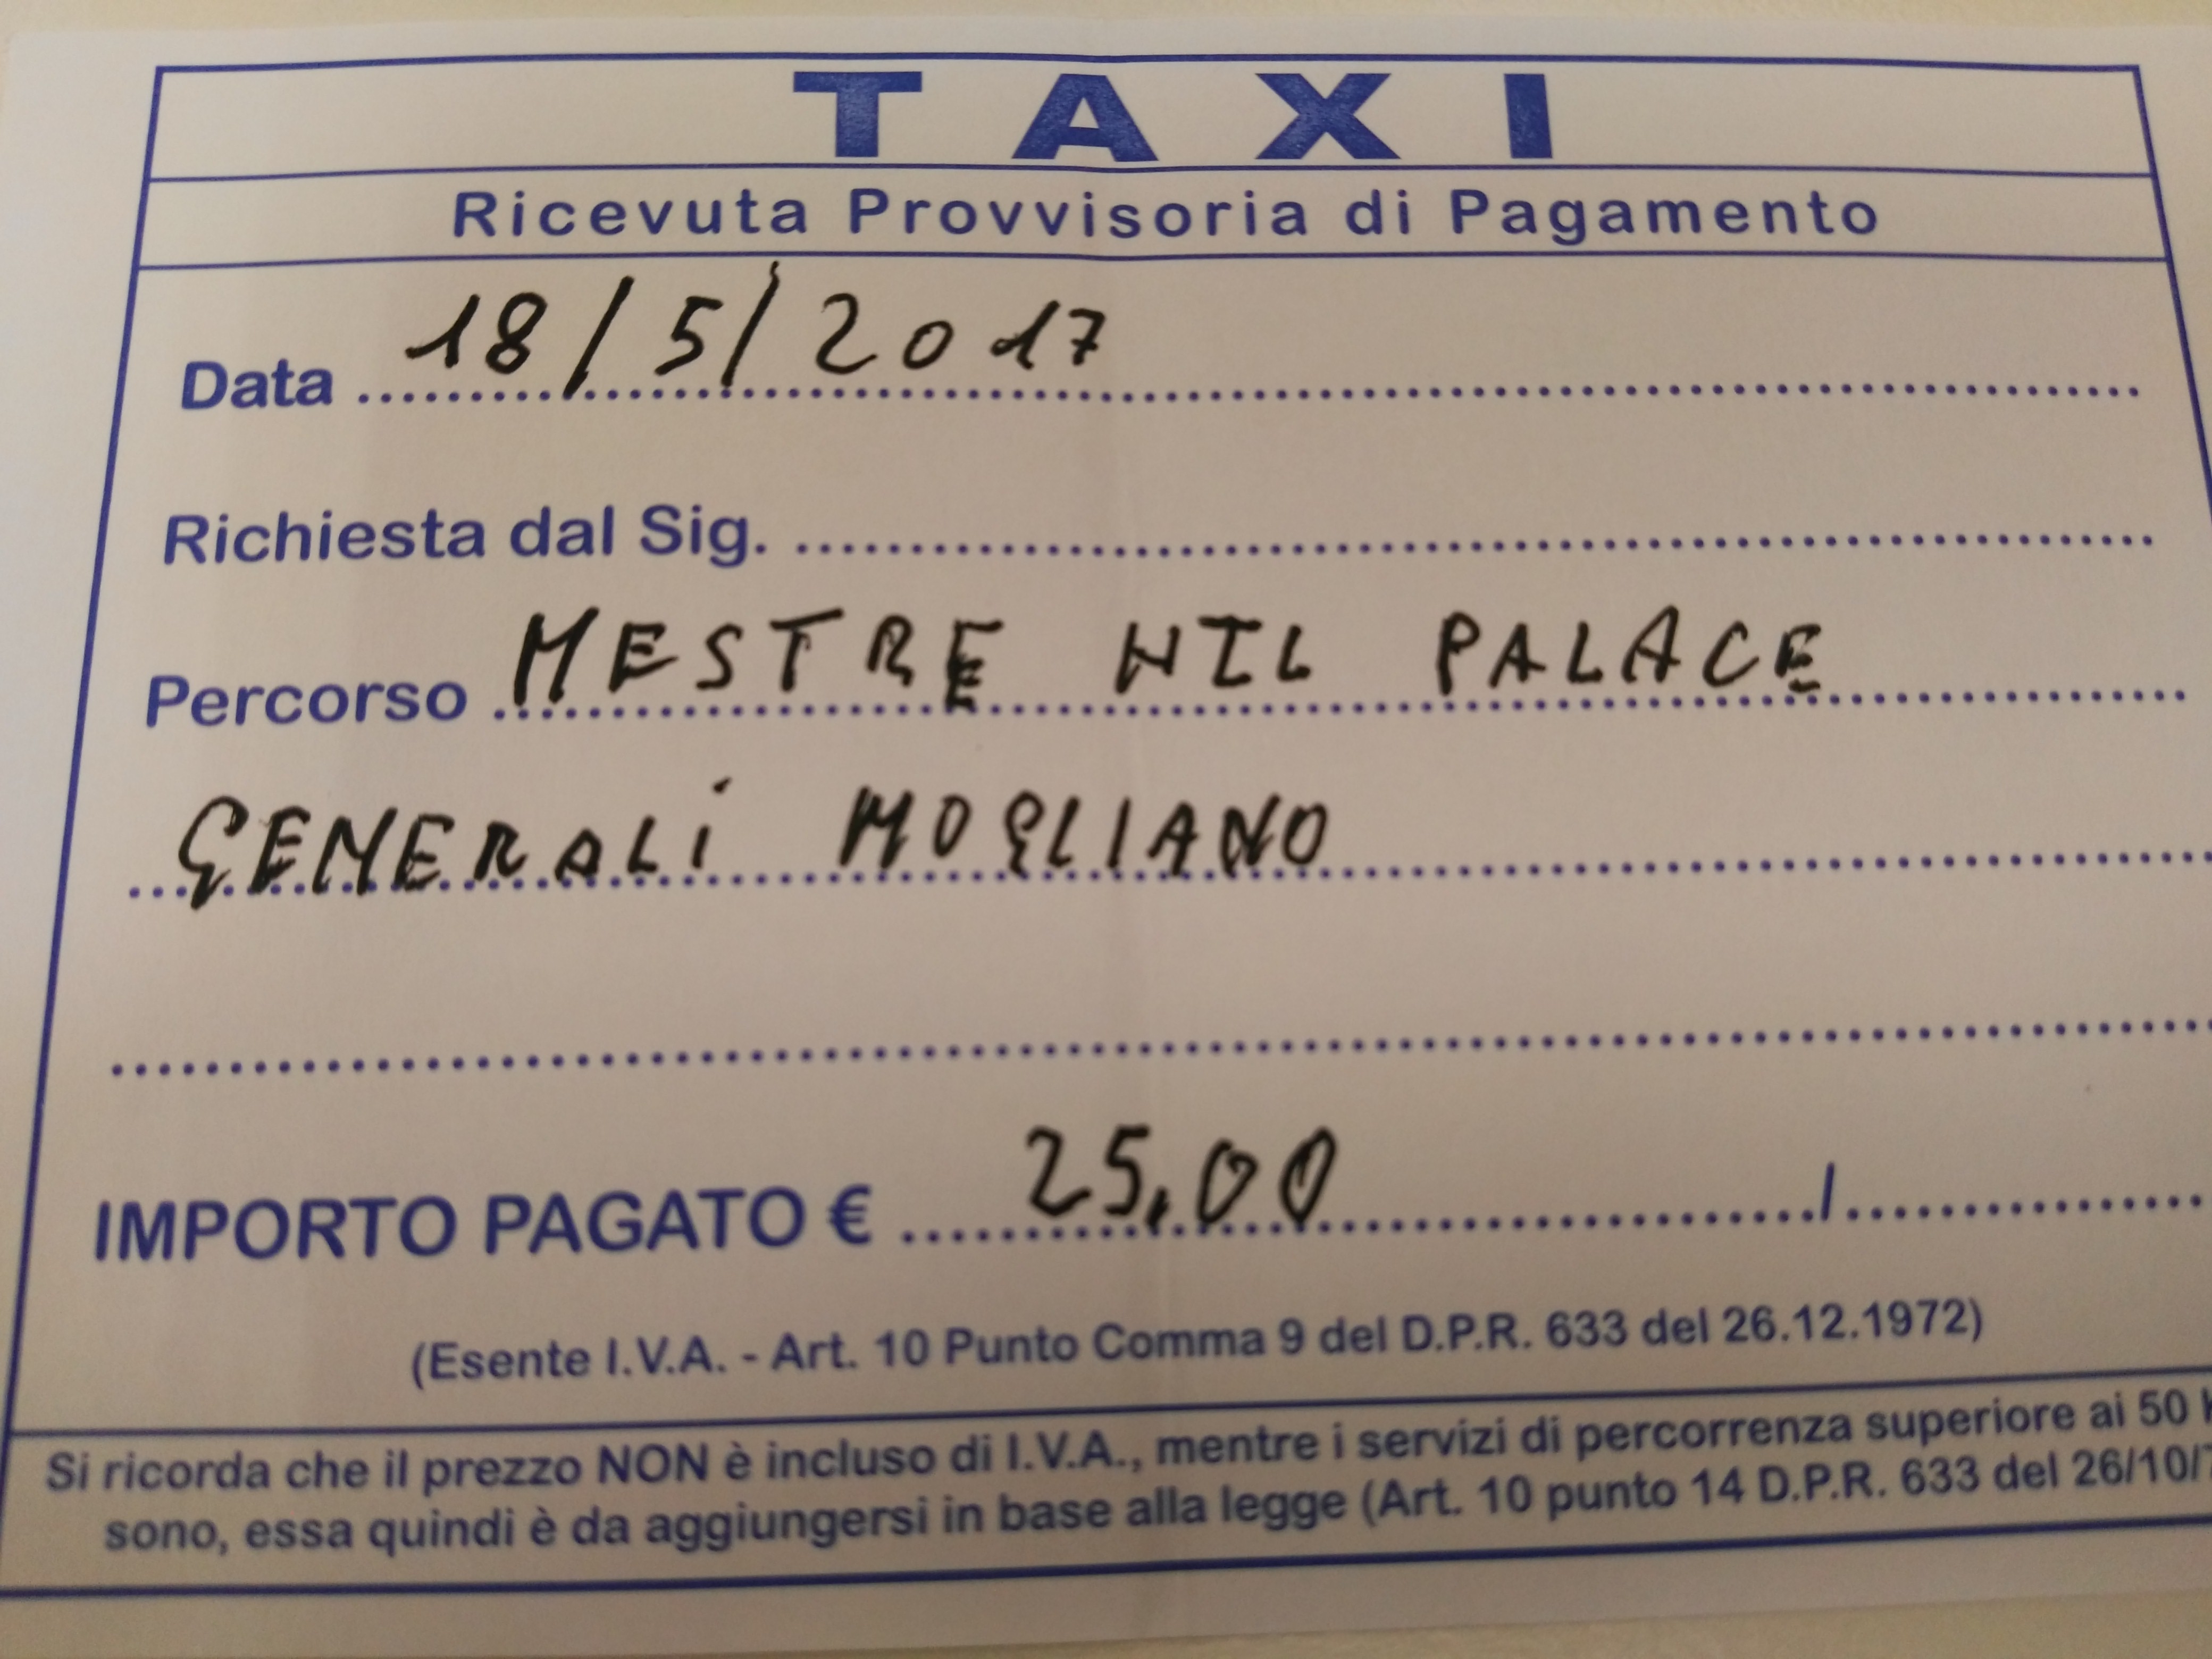 TAXI
Ricevuta Provvisoria di Pagamento
Data 18/5/2017
Richiesta dal Sig.
Percorso MESTRE HTL PALACE
GENERALi MOGLIANO
IMPORTO PAGATO € 25,00 /
(Esente I.V.A. - Art. 10 Punto Comma 9 del D.P.R. 633 del 26.12.1972)
Si ricorda che il prezzo NON è incluso di I.V.A., mentre i servizi di percorrenza superiore ai 50
sono, essa quindi è da aggiungersi in base alla legge (Art. 10 punto 14 D.P.R. 633 del 26/10/